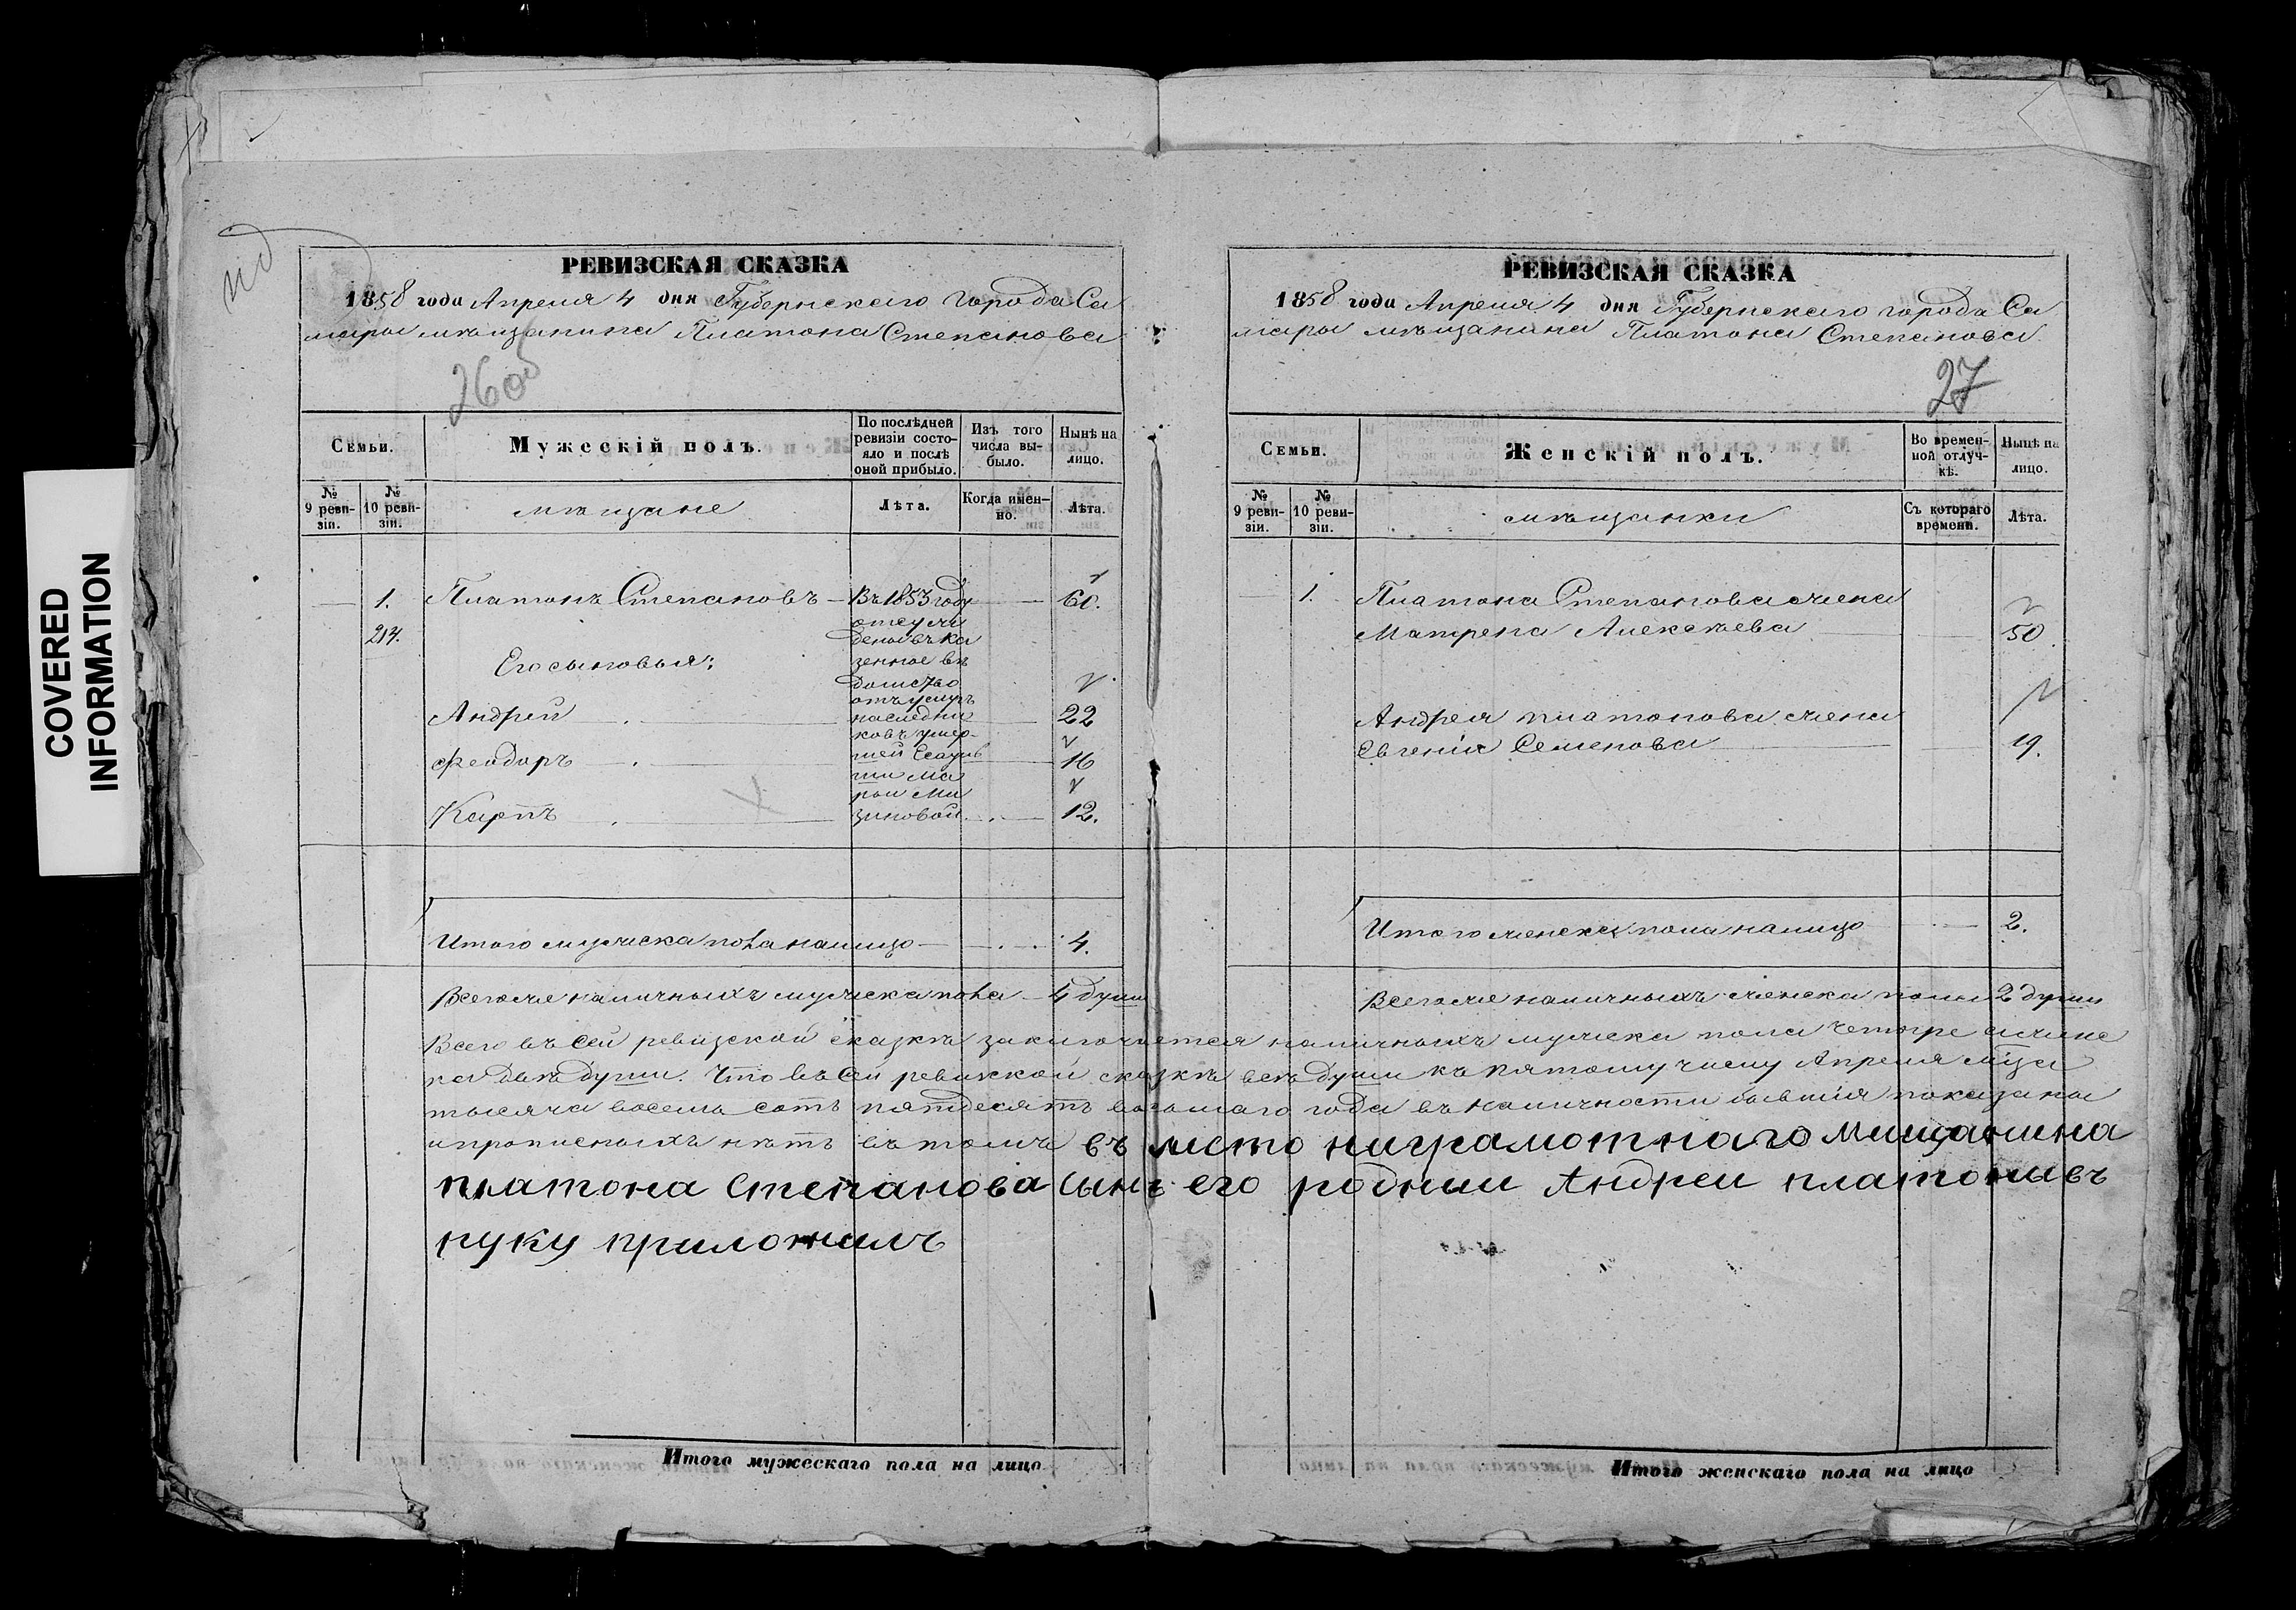 COVERED
INFORMATION
РЕВИЗСКАЯ СКАЗКА
1858 года Апреля 4 дня Губернскаго города Са
мары мѣщанина Платона Степанова
26об
Семьи.
Мужескій полъ.
По послѣдней ревизіи состояло и послѣ оной прибыло.
Изъ того числа выбыло.
Нынѣ на лицо.
№ 9 ревизіи.
№ 10 ревизіи.
мѣщане
Лѣта.
Когда именно.
Лѣта.
1. Платонъ Степановъ 60.
214.
Его сыновья:
Андрей 22
Феодоръ 16
Карпъ 12.
Въ 1853 году
отсуж
денъ въ ка
зенное вѣ
домство
отъ умер
наследни
ковъ умер-
шей
Ма
рьи Ми
зиновой.
Итого мужеска пола налицо 4.
Всего же наличныхъ мужеска пола 4 души
РЕВИЗСКАЯ СКАЗКА
1858 года Апреля 4 дня Губернскаго города Са
мары мѣщанина Платона Степанова
27
Семьи.
Женскій полъ.
Во временной отлучкѣ.
Нынѣ на лицо.
№ 9 ревизіи.
№ 10 ревизіи.
мѣщанки
Съ котораго времени.
Лѣта.
1. Платона Степанова жена
Матрена Алексѣева 50
Андрея Платонова жена
Евгенія Семенова 19.
Итого женска пола налицо 2.
Всего же наличныхъ женска пола 2 души
Всего въ сей ревизской сказкѣ заключается наличныхъ мужеска пола четыре а женс
ка двѣ души. Что въ сей ревизской сказкѣ всѣ души къ пятому числу Апреля мѣца
тысяча восемь сотъ пятдесятъ восьмаго года въ наличности бывшія показаны
и прописныхъ нѣтъ въ томъ въ место ниграмотнаго мищанина
платона Степанова сынъ его родныи Андреи платоновъ
руку приложилъ
Итого мужескаго пола на лицо
Итого женскаго пола на лицо